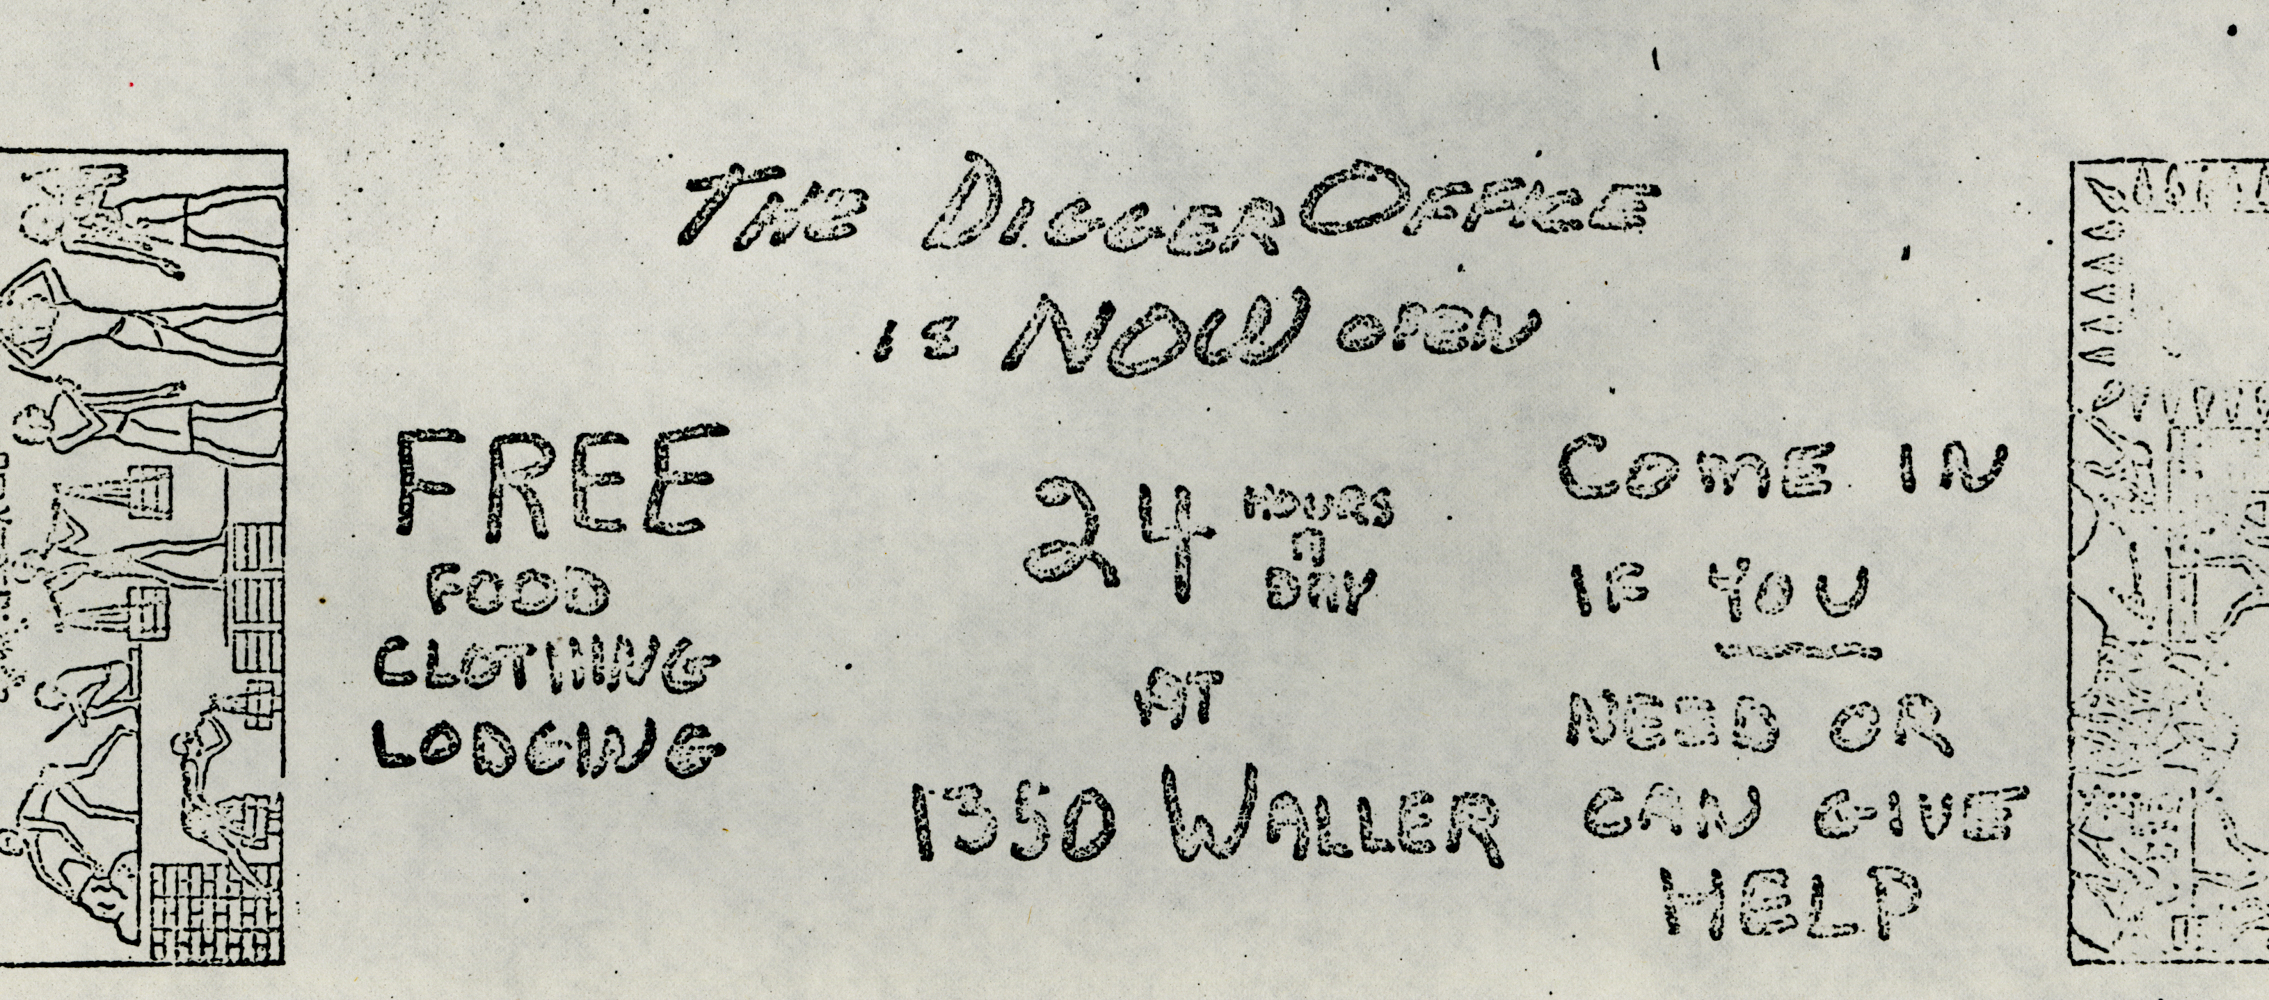 THE DIGGER OFFICE
IS NOW OPEN
FREE
FOOD
CLOTHING
LODGING
24 HOURS
A
DAY
AT
1350 WALLER
COME IN
IF YOU
NEED OR
CAN GIVE
HELP